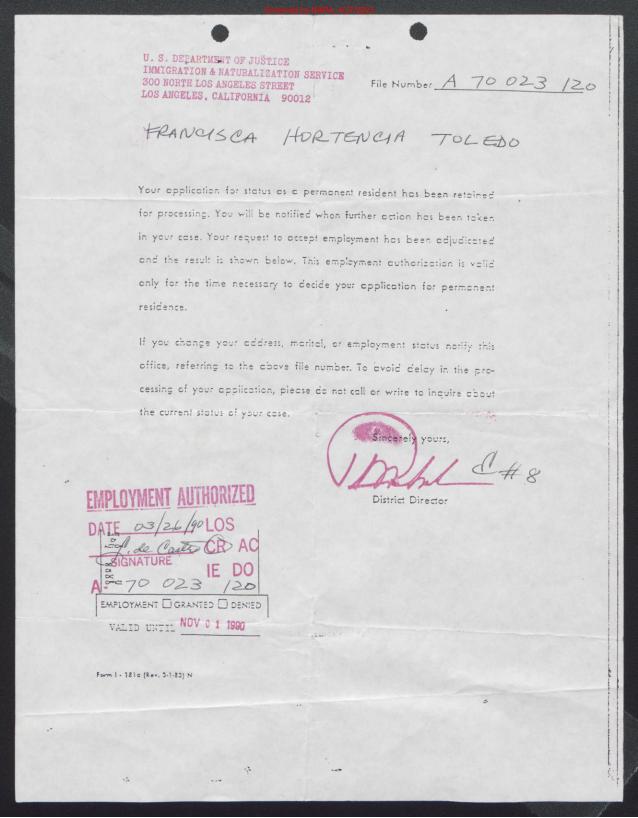 U. S. DEPARTMENT OF JUSTICE
IMMIGRATION & NATURALIZATION SERVICE
300 NORTH LOS ANGELES STREET
LOS ANGELES, CALIFORNIA 90012
File Number A 70 023 120
FRANCISCA HORTENCIA TOLEDO
Your application for status as a permanent resident has been retained
for processing. You will be notified when further action has been taken
in your case. Your request to accept employment has been adjudicated
and the result is shown below. This employment authorization is valid
only for the time necessary to decide your application for permanent
residence.
If you change your address, marital, or employment status notify this
office, referring to the above file number. To avoid delay in the pro-
cessing of your application, please do not call or write to inquire about
the current status of your case.
Sincerely yours,
C #8
District Director
EMPLOYMENT AUTHORIZED
DATE 03/26/90 LOS
J. de Castro CR AC
SIGNATURE IE DO
A 70 023 120
EMPLOYMENT GRANTED DENIED
VALID UNTIL NOV 01 1990
Form I-181a (Rev. 5-1-83) N